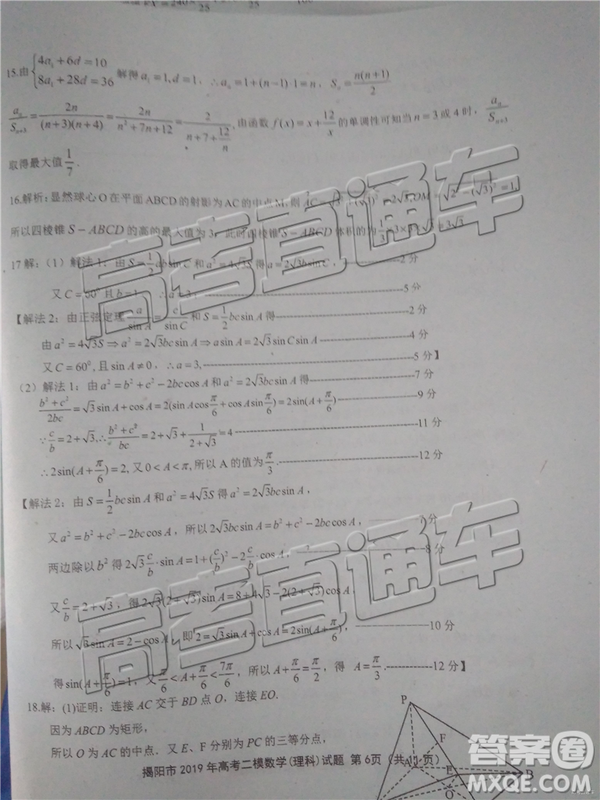 15.由{4a₁+6d=10 8a₁+28d=36 解得a₁=1,d=1，∴aₙ=1+(n−1)·1=n，Sₙ=n(n+1)/2
aₙ/Sₙ₊₃=2n/((n+3)(n+4))=2n/(n²+7n+12)=2/(n+7+12/n),由函数f(x)=x+12/x的单调性可知当n=3或4时，aₙ/Sₙ₊₃
取得最大值1/7.
16.解析:显然球心O在平面ABCD的射影为AC的中点M,则AC=
所以四棱锥S−ABCD的高的最大值为3，此时四棱锥S−ABCD体积的为
17解：(1) 解法1：由S=1/2 ab sin C和a²=4√3S得a=2√3b sin C，----------2分
又C=60°且b=1，∴a=3，----------5分
【解法2：由正弦定理a/sin A=c/sin C和S=1/2 bc sin A得----------2分
由a²=4√3S⇒a²=2√3bc sin A⇒a sin A=2√3 sin C sin A----------4分
又C=60°,且sin A≠0，∴a=3,----------5分】
(2) 解法1：由a²=b²+c²−2bc cos A和a²=2√3bc sin A得----------7分
(b²+c²)/2bc=√3 sin A+cos A=2(sin A cos π/6+cos A sin π/6)=2sin(A+π/6)----------9分
∵c/b=2+√3,∴(b²+c²)/bc=2+√3+1/(2+√3)=4----------11分
∴2sin(A+π/6)=2,又0<A<π,所以A的值为π/3.----------12分
【解法2：由S=1/2 bc sin A和a²=4√3S得a²=2√3bc sin A，
又a²=b²+c²−2bc cos A，所以2√3bc sin A=b²+c²−2bc cos A，----------7分
两边除以b²得2√3 c/b sin A=1+(c/b)²−2 c/b cos A，----------8分
又c/b=2+√3，得2√3(2+√3)sin A=8+4√3−2(2+√3)cos A，
所以√3 sin A=2−cos A，即2=√3 sin A+cos A=2sin(A+π/6)，
得sin(A+π/6)=1，又π/6<A+π/6<7π/6，所以A+π/6=π/2，得 A=π/3.----------12分】
18.解：(1)证明：连接AC交于BD点O，连接EO.
因为ABCD为矩形，
所以O为AC的中点．又E、F分别为PC的三等分点，
P
E
A
B
揭阳市2019年高考二模数学(理科)试题 第6页（共11页）
高考直通车
高考直通车
高考直通车
答案圈
MXQE.COM